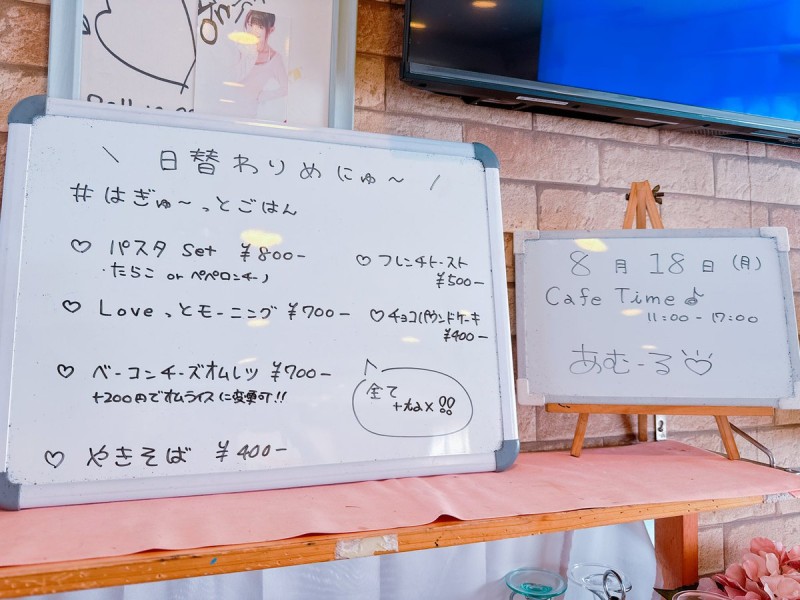 \ 日替わりめにゅ〜 /
# はぎゅ〜っとごはん
♡ パスタ Set ¥800-
・たらこ or ペペロンチーノ
♡ Loveっとモーニング ¥700-
♡ ベーコンチーズオムレツ ¥700-
+200円でオムライスに変更可!!
♡ やきそば ¥400-
♡ フレンチトースト
¥500-
♡ チョコパウンドケーキ
¥400-
全て
8月18日(月)
Cafe Time♪
11:00-17:00
あむーる♡